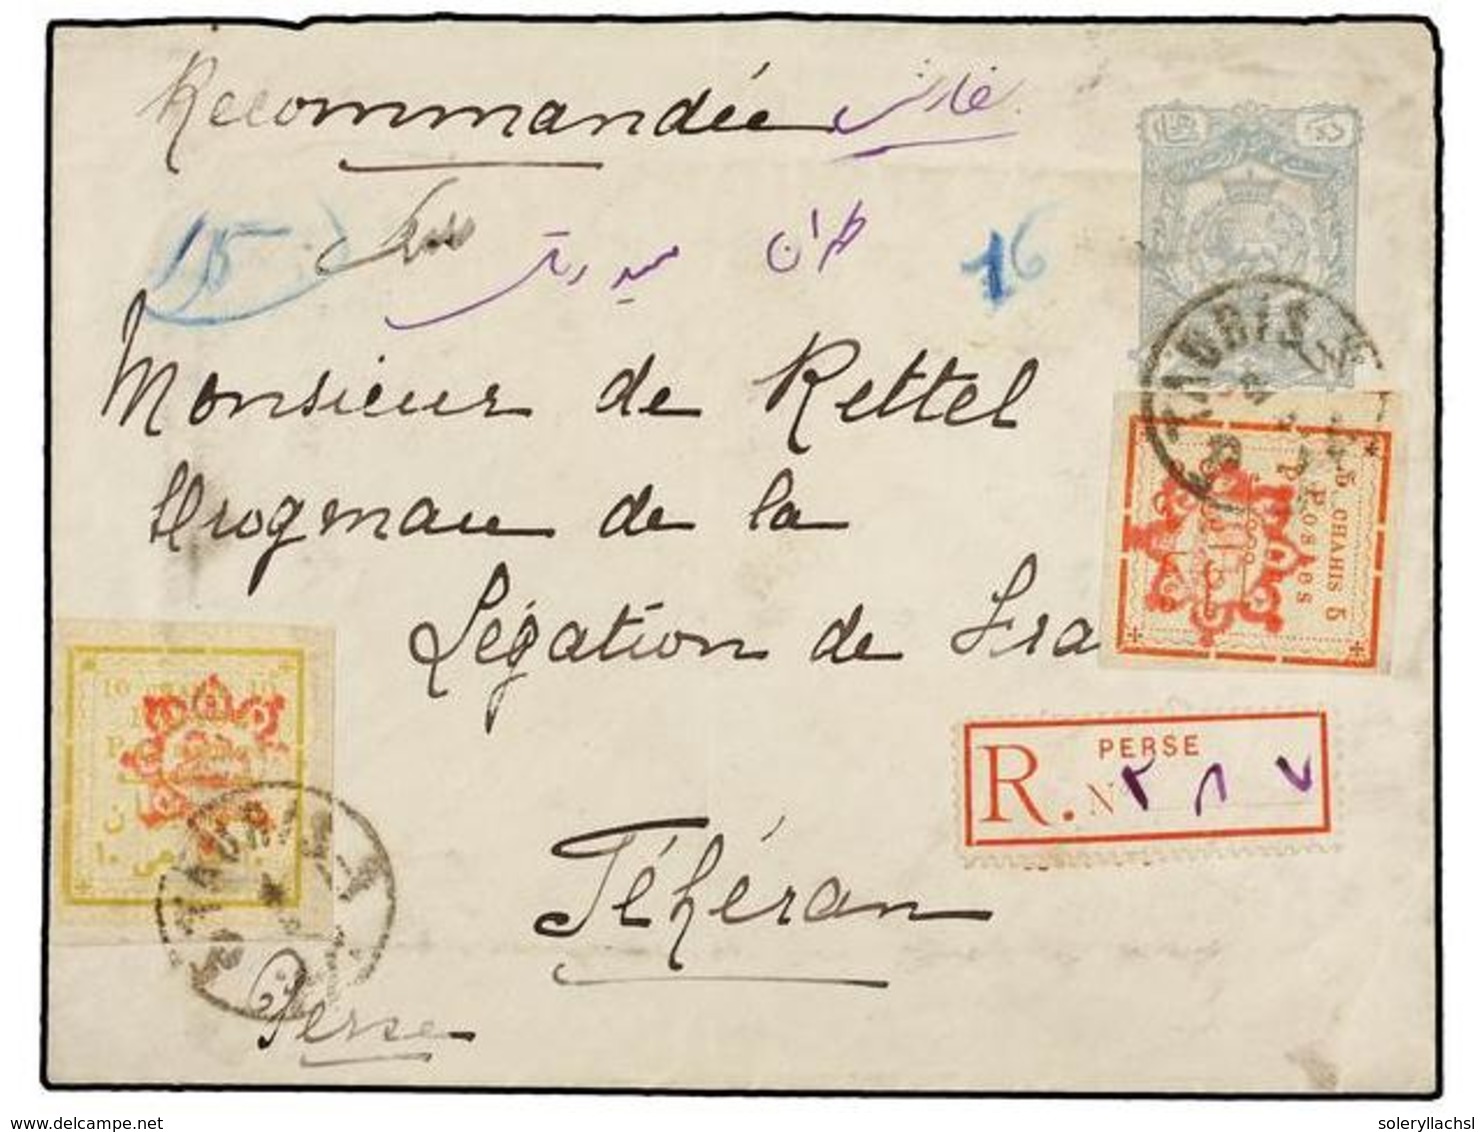 Recommandée سفارشی
15 16
طهران
Monsieur de Rettel
Drogman de la
Légation de Fra
Téhéran
Perse
TAURIS
5 CHAHIS 5
Postes
P
10
P
TAURIS
R. PERSE
N ٢٨٧
soleryllachsl